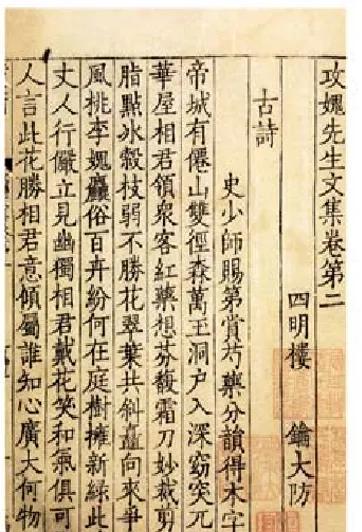 攻媿先生文集卷第二
四明樓 鑰大防
古詩
史少師賜第賞芍藥分韻得木字
帝城有僊山雙徑森萬玉洞户入深窈突兀
華屋相君領衆客紅藥想芬馥霜刀妙裁剪
脂點冰縠枝弱不勝花翠葉共斜矗向來爭
風桃李媿麤俗百卉紛何在庭樹擁新緑此
丈人行儼立見幽獨相君戴花笑和氣俱可
人言此花勝相君意傾屬誰知心廣大何物